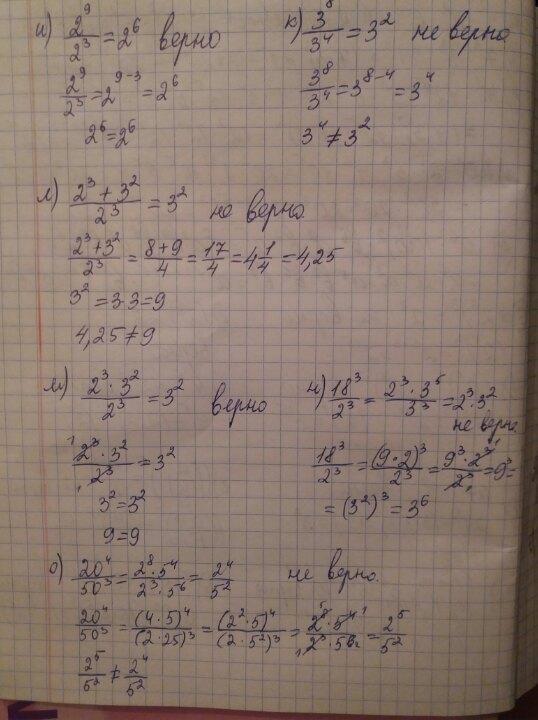 и) 2⁹/2³ = 2⁶ верно
2⁹/2³ = 2⁹⁻³ = 2⁶
2⁶ = 2⁶
к) 3⁸/3⁴ = 3² не верно
3⁸/3⁴ = 3⁸⁻⁴ = 3⁴
3⁴ ≠ 3²
л) (2³ + 3²)/2³ = 3² не верно
(2³ + 3²)/2³ = (8+9)/4 = 17/4 = 4 1/4 = 4,25
3² = 3·3 = 9
4,25 ≠ 9
м) (2³ · 3²)/2³ = 3² верно
(2³ · 3²)/2³ = 3²
3² = 3²
9 = 9
н) 18³/2³ = (2³ · 3⁵)/3³ = 2³ · 3²
не верно
18³/2³ = (9·2)³/2³ = (9³ · 2³)/2³ = 9³ =
= (3²)³ = 3⁶
о) 20⁴/50³ = (2⁸ · 5⁴)/(2³ · 5⁶) = 2⁴/5² не верно.
20⁴/50³ = (4·5)⁴/(2·25)³ = (2²·5)⁴/(2·5²)³ = (2⁸ · 5⁴)/(2³ · 5⁶) = 2⁵/5²
2⁵/5² ≠ 2⁴/5²